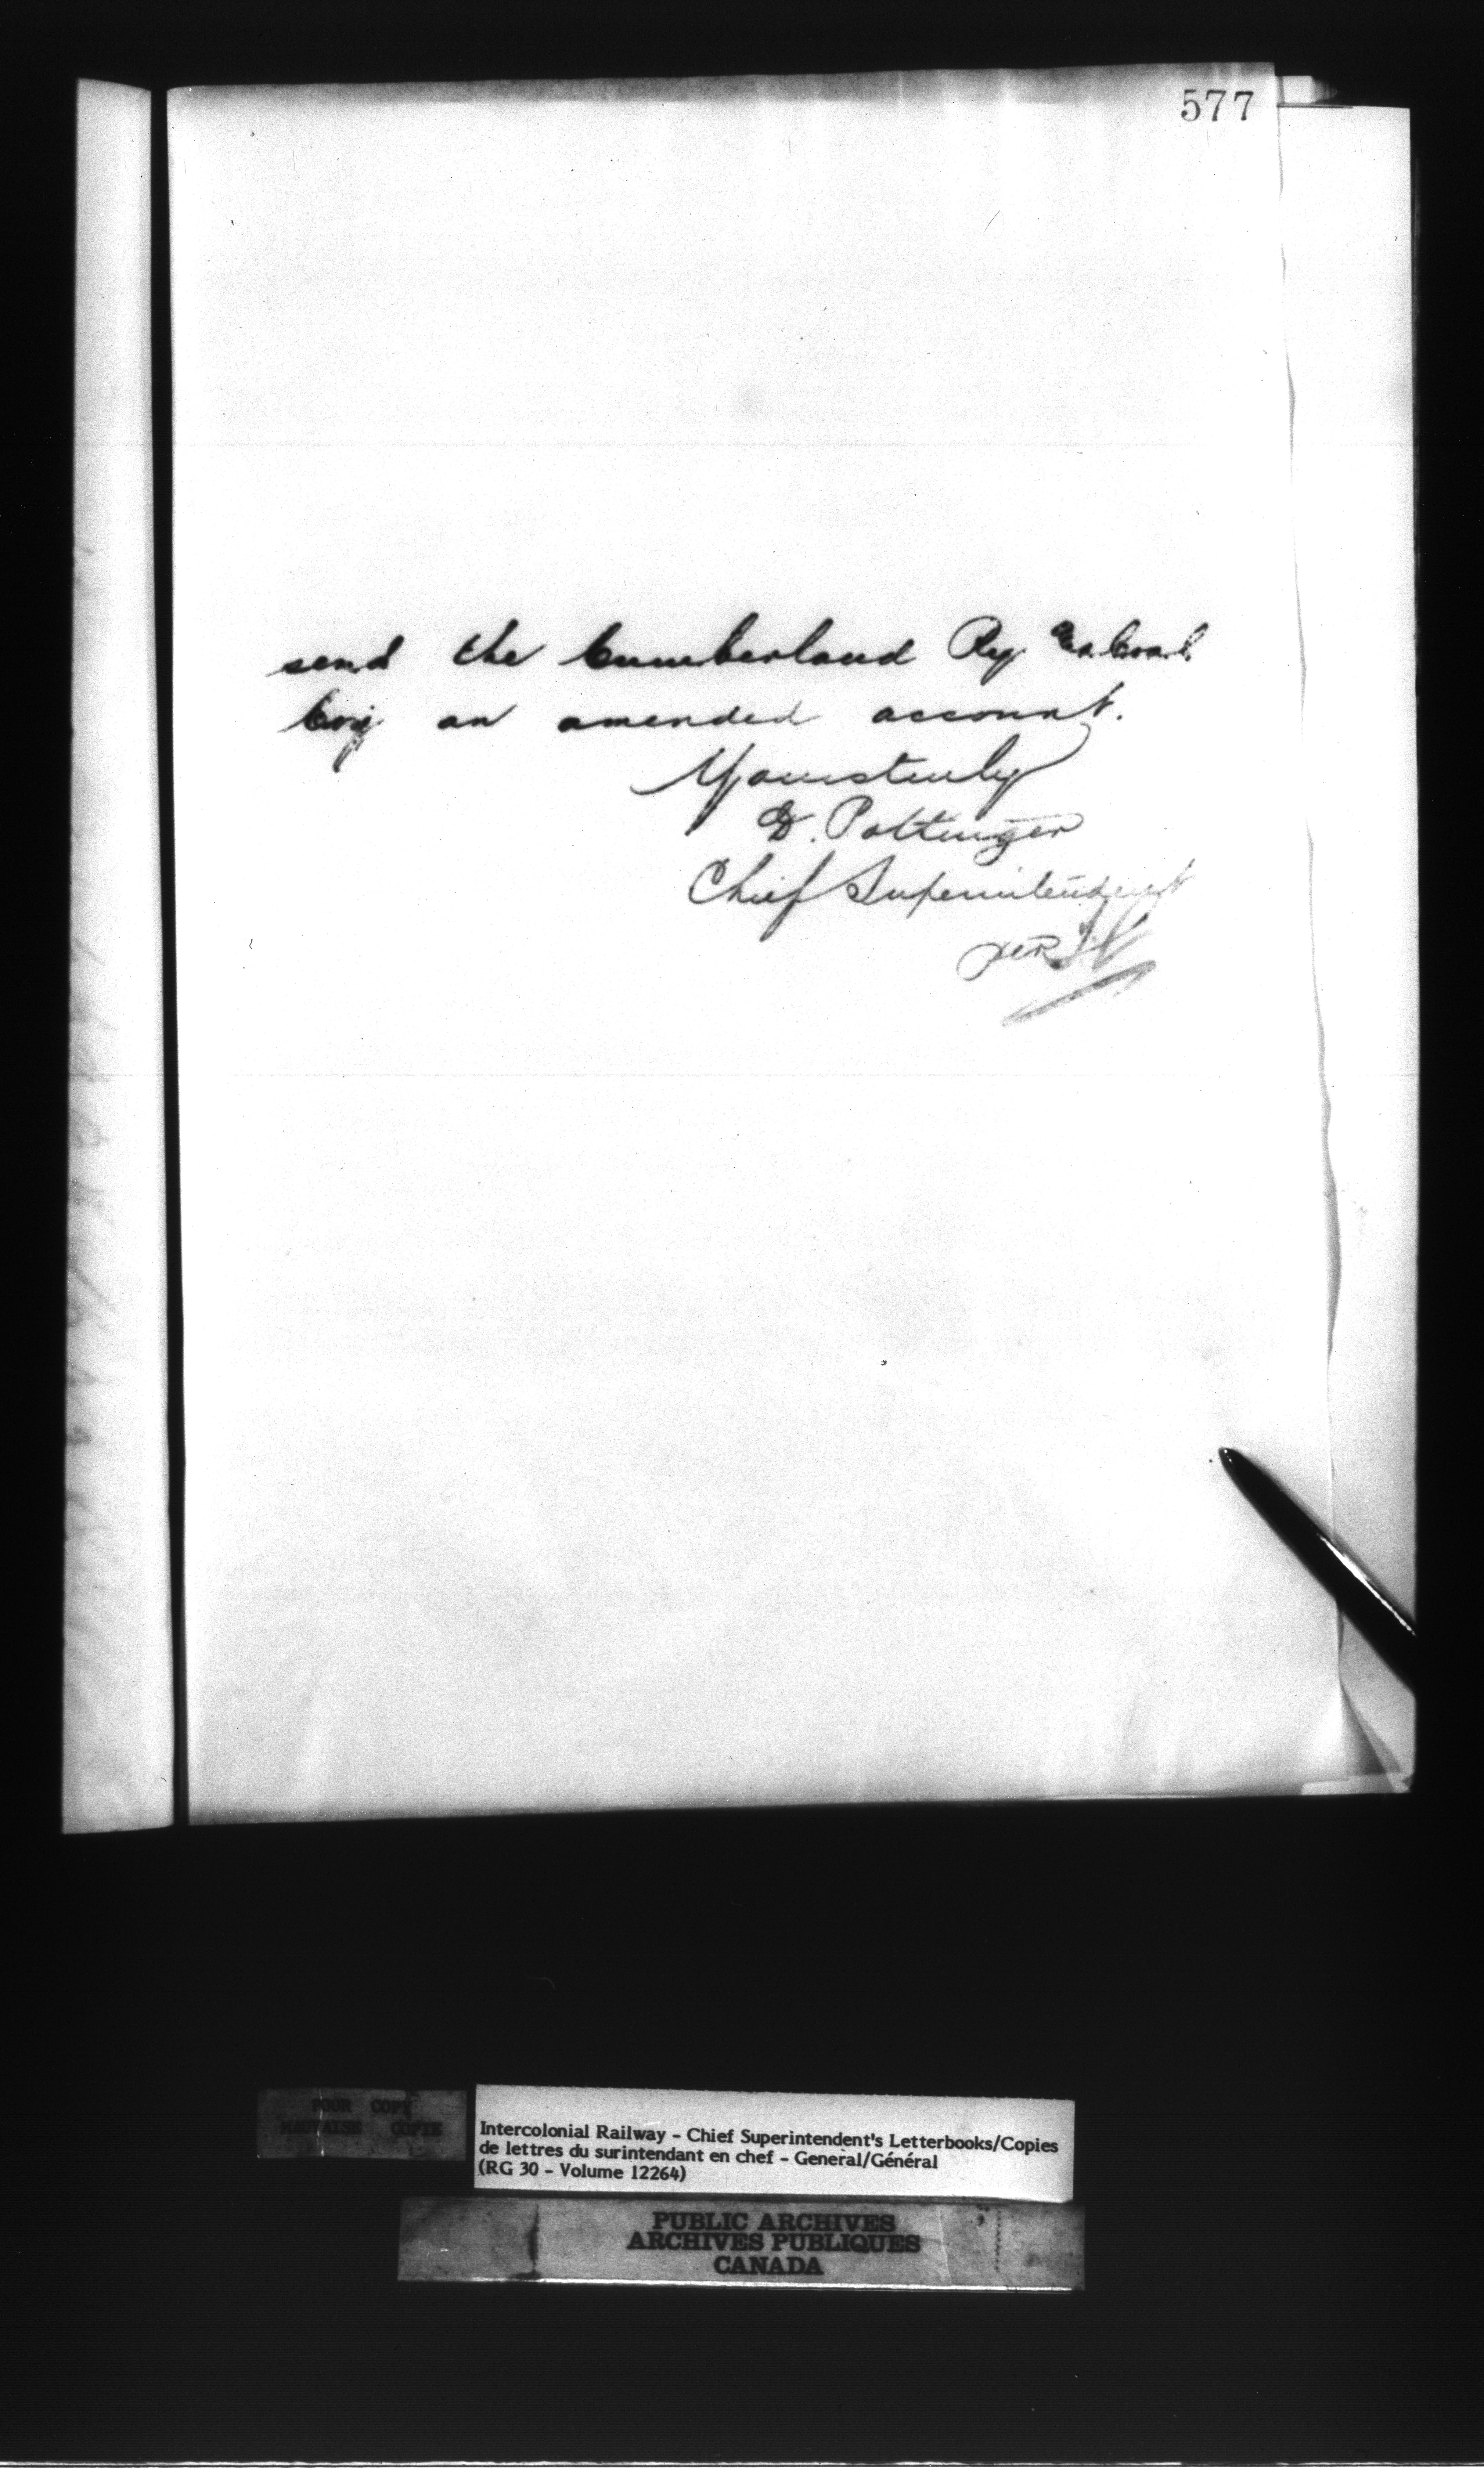 577
send the Cumberland Ry & Coal
Coy an amended account.
Yours truly
D. Pottinger
Chief Superintendent
per
POOR COPY
MAUVAISE COPIE
Intercolonial Railway - Chief Superintendent's Letterbooks/Copies
de lettres du surintendant en chef - General/Général
(RG 30 - Volume 12264)
PUBLIC ARCHIVES
ARCHIVES PUBLIQUES
CANADA